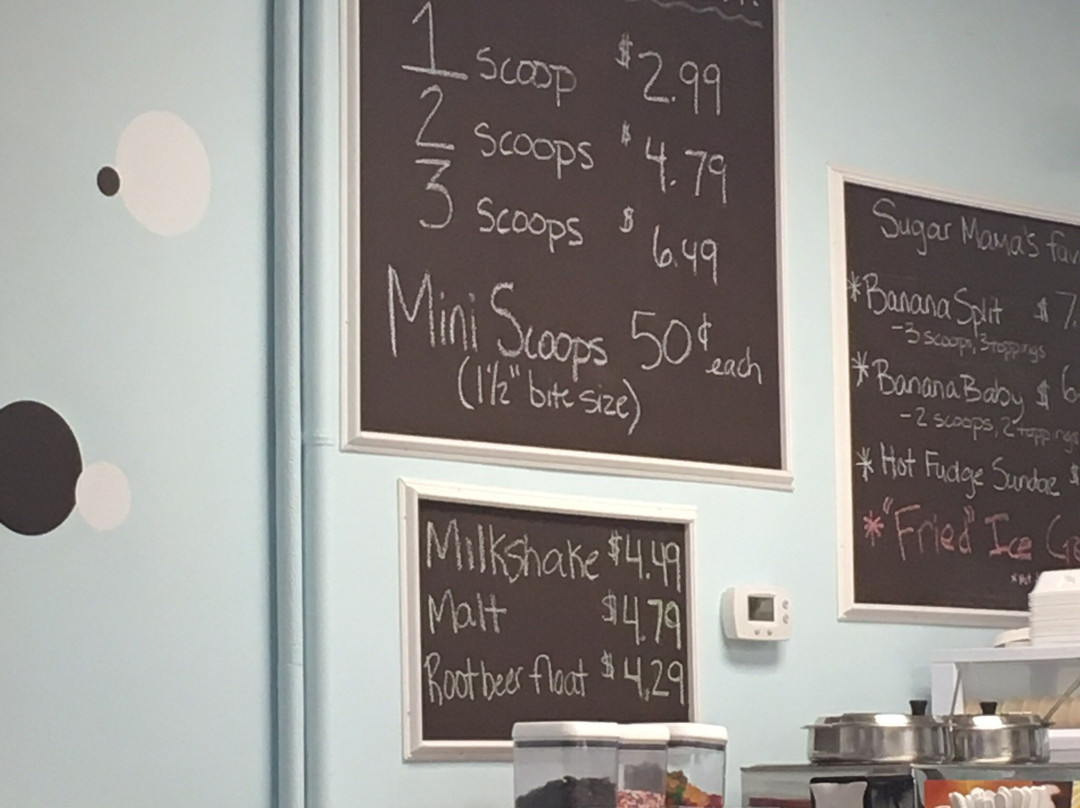 1 Scoop $2.99
2 Scoops $4.79
3 Scoops $6.49
Mini Scoops 50¢ each
(1½" bite size)
Milkshake $4.49
Malt $4.79
Rootbeer float $4.29
Sugar Mama's
*Banana Split $7.
-3 scoops, 3 toppings
*Banana Baby $6
-2 scoops, 2 toppings
*Hot Fudge Sundae $
*"Fried" Ice